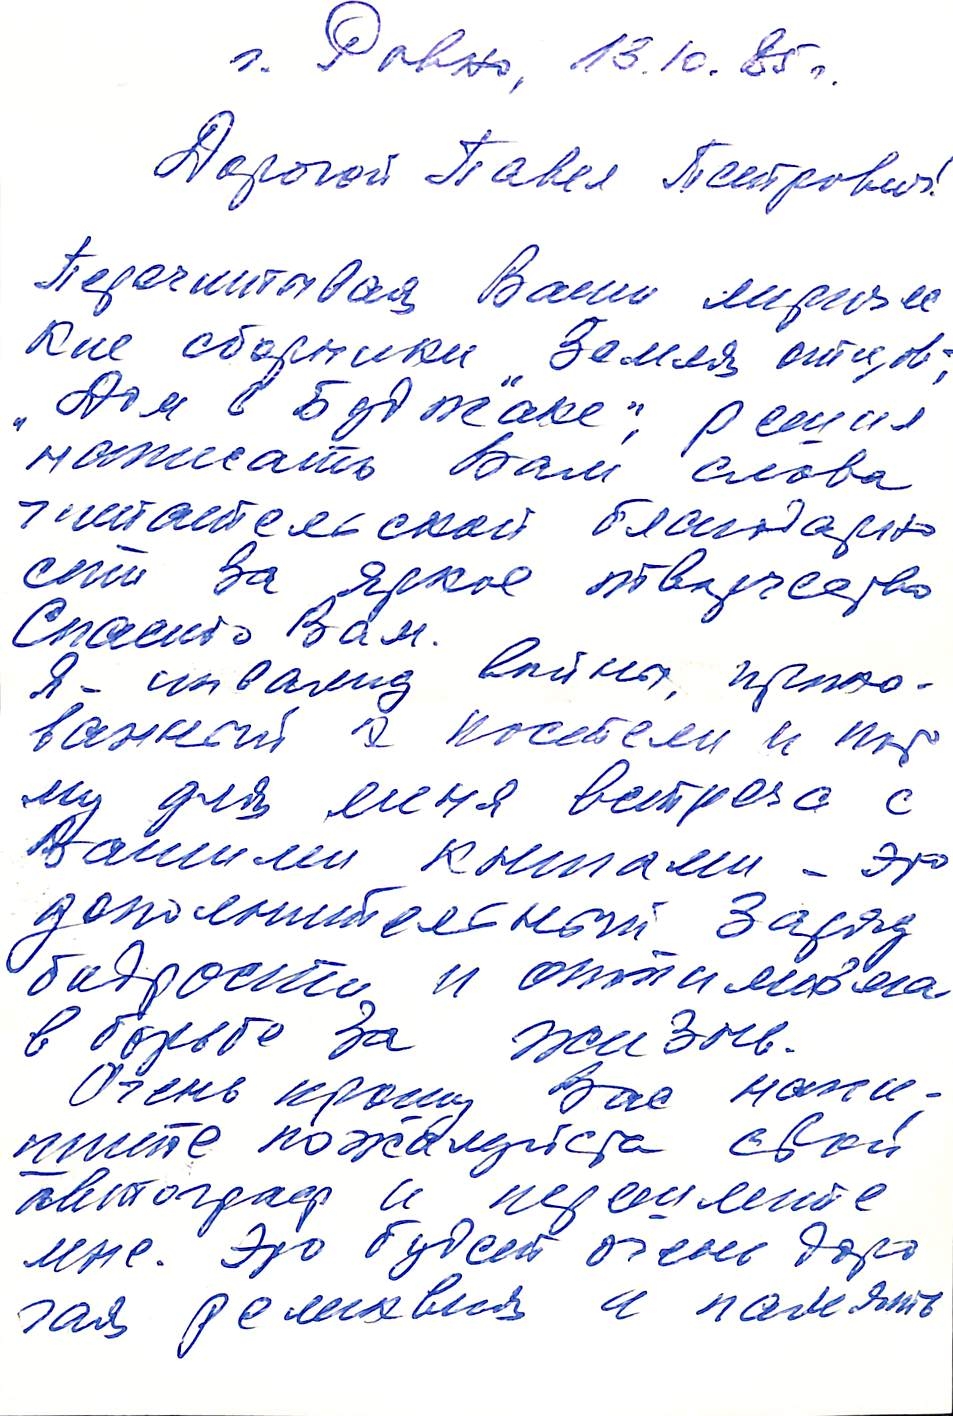 г. Ровно, 13.10.85 г.
Дорогой Павел Петрович!
Перечитывая Ваши лиричес
кие сборники „Земля отцов",
„Дом в Буджаке", решил
написать Вам слова
читательской благодарно
сти за яркое творчество
Спасибо Вам.
Я - инвалид войны, прико-
ванный к постели и пото
му для меня встреча с
Вашими книгами - это
дополнительный заряд
бодрости и оптимизма
в борьбе за жизнь.
Очень прошу Вас напи-
шите пожалуйста свой
автограф и перешлите
мне. Это будет очень доро
гая реликвия и память